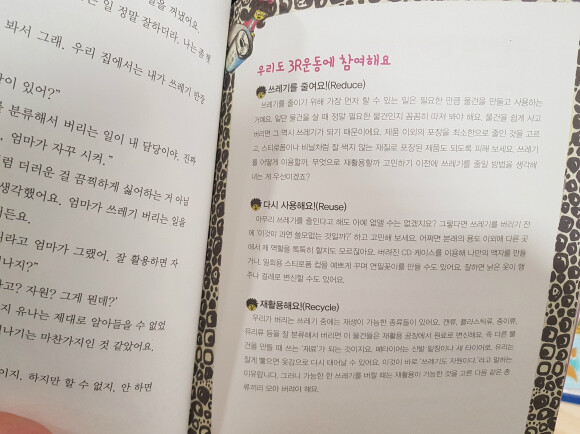 을 꺼냈어요.
는 일 정말 잘하더라. 나는 좀
봐서 그래. 우리 집에서는 내가 쓰레기 반장
이 있어?”
를 분류해서 버리는 일이 내 담당이야. 진짜
엄마가 자꾸 시켜.”
럼 더러운 걸 끔찍하게 싫어하는 거 아닐
생각했어요. 엄마가 쓰레기 버리는 일을
거든요.
라고 엄마가 그랬어. 잘 활용하면 자
나지?”
라고? 자원? 그게 뭔데?’
지 유나는 제대로 알아들을 수 없었
나기는 마찬가지인 것 같았어요.
이지. 하지만 할 수 없지. 안 하면
우리도 3R운동에 참여해요
쓰레기를 줄여요!(Reduce)
쓰레기를 줄이기 위해 가장 먼저 할 수 있는 일은 필요한 만큼 물건을 만들고 사용하는
거예요. 일단 물건을 살 때 정말 필요한 물건인지 꼼꼼히 따져 봐야 해요. 물건을 쉽게 사고
버리면 그 역시 쓰레기가 되기 때문이에요. 제품 이외의 포장을 최소한으로 줄인 것을 고르
고, 스티로폼이나 비닐처럼 잘 썩지 않는 재질로 포장된 제품도 되도록 피해 보세요. 쓰레기
를 어떻게 이용할까, 무엇으로 재활용할까 고민하기 이전에 쓰레기를 줄일 방법을 생각해
내는 게 우선이겠죠?
다시 사용해요!(Reuse)
아무리 쓰레기를 줄인다고 해도 아예 없앨 수는 없겠지요? 그렇다면 쓰레기를 버리기 전
에 ‘이것이 과연 쓸모없는 것일까?’ 하고 고민해 보세요. 어쩌면 본래의 용도 이외에 다른 곳
에서 제 역할을 톡톡히 할지도 모르잖아요. 버려진 CD 케이스를 이용해 나만의 액자를 만들
거나, 일회용 스티로폼 컵을 예쁘게 꾸며 연필꽂이를 만들 수도 있어요. 잘하면 낡은 옷이 행
주나 걸레로 변신할 수도 있어요.
재활용해요!(Recycle)
우리가 버리는 쓰레기 중에는 재생이 가능한 종류들이 있어요. 캔류, 플라스틱류, 종이류,
유리류 등을 잘 분류해서 버리면 이 물건들은 재활용 공장에서 원료로 변신해요. 즉 다른 물
건을 만들 때 쓰는 ‘재료’가 되는 것이지요. 폐타이어는 신발 밑창이나 새 타이어로, 유리는
잘게 빻으면 옷감으로 다시 태어날 수 있어요. 이것이 바로 ‘쓰레기도 자원이다.’라고 말하는
이유랍니다. 그러니 가능한 한 쓰레기를 버릴 때는 재활용이 가능한 것을 고른 다음 같은 종
류끼리 모아 버려야 해요.